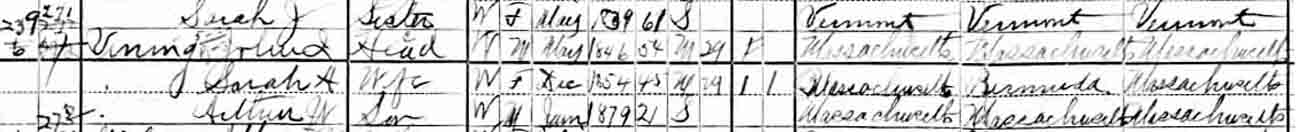 239 271 Sarah J Sister W F May 1839 61 S Vermont Vermont Vermont
Vining Head W M May 1846 54 M 29 Massachusetts Massachusetts Massachusetts
Sarah A Wife W F Dec 1854 45 M 29 1 1 Massachusetts Bermuda Massachusetts
Arthur W Son W M Jan 1879 21 S Massachusetts Massachusetts Massachusetts